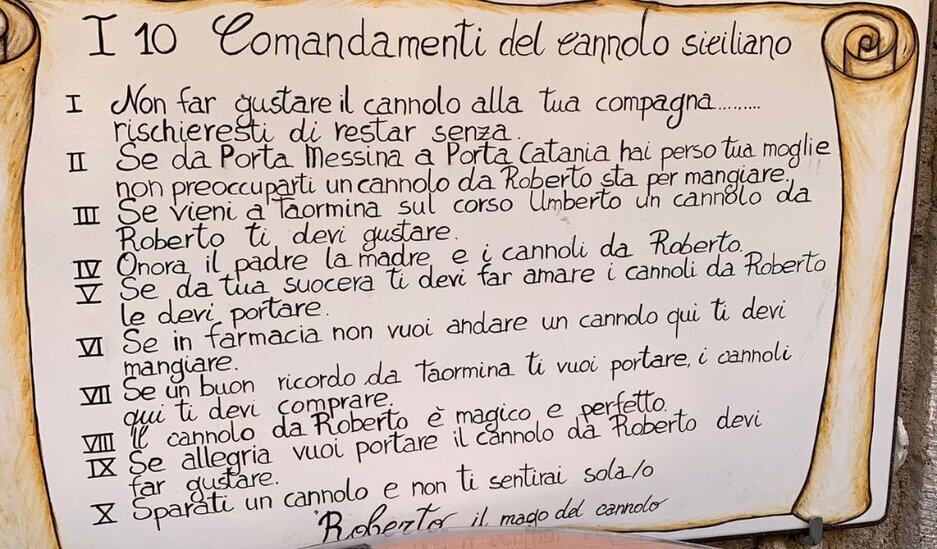 I 10 Comandamenti del cannolo siciliano
I Non far gustare il cannolo alla tua compagna.........
rischieresti di restar senza.
II Se da Porta Messina a Porta Catania hai perso tua moglie
non preoccuparti un cannolo da Roberto sta per mangiare.
III Se vieni a Taormina sul corso Umberto un cannolo da
Roberto ti devi gustare.
IV Onora il padre la madre e i cannoli da Roberto.
V Se da tua suocera ti devi far amare i cannoli da Roberto
le devi portare.
VI Se in farmacia non vuoi andare un cannolo qui ti devi
mangiare.
VII Se un buon ricordo da Taormina ti vuoi portare, i cannoli
qui ti devi comprare.
VIII Il cannolo da Roberto è magico e perfetto.
IX Se allegria vuoi portare il cannolo da Roberto devi
far gustare.
X Sparati un cannolo e non ti sentirai sola/o
Roberto il mago del cannolo